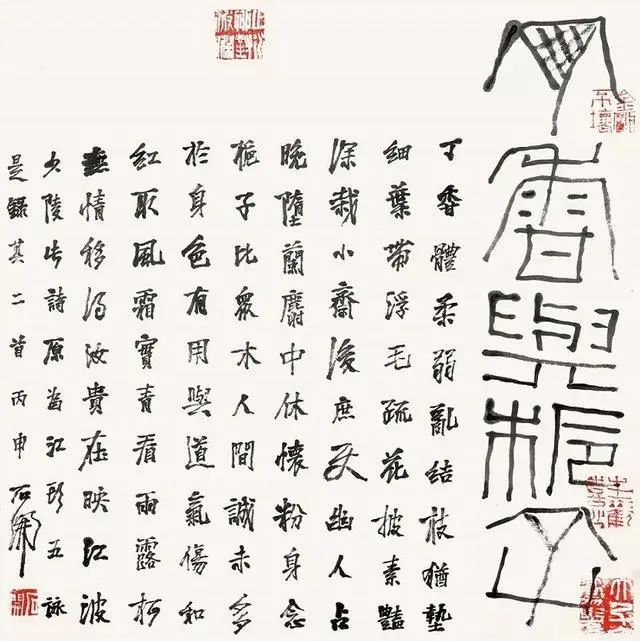 丁香與梔子
丁香體柔弱亂結枝猶墊
細葉帶浮毛疏花披素豔
深栽小齋後庶使幽人占
晚墮蘭麝中休懷粉身念
梔子比衆木人間誠未多
於身色有用與道氣傷和
紅取風霜實青看雨露柯
無情移得汝貴在映江波
少陵此詩原為江頭五詠
是錄其二首丙申石開